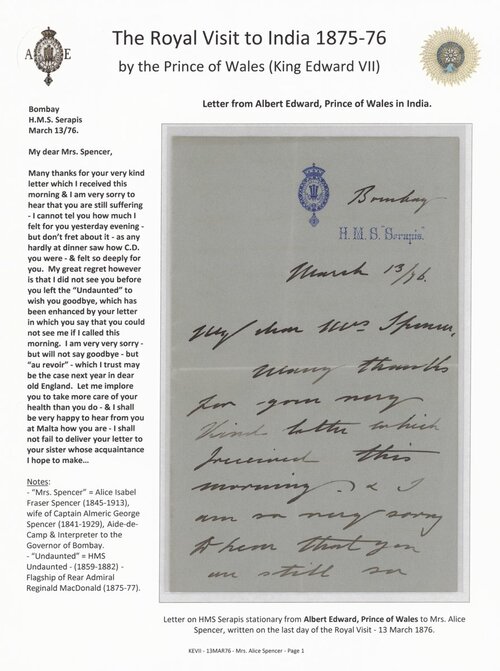 A E
The Royal Visit to India 1875-76
by the Prince of Wales (King Edward VII)
Letter from Albert Edward, Prince of Wales in India.
Bombay
H.M.S. Serapis
March 13/76.
My dear Mrs. Spencer,
Many thanks for your very kind
letter which I received this
morning & I am very sorry to
hear that you are still suffering
- I cannot tell you how much I
felt for you yesterday evening -
but don't fret about it - as any
hardly at dinner saw how C.D.
you were - & felt so deeply for
you. My great regret however
is that I did not see you before
you left the "Undaunted" to
wish you goodbye, which has
been enhanced by your letter
in which you say that you could
not see me if I called this
morning. I am very very sorry -
but will not say goodbye - but
"au revoir" - which I trust may
be the case next year in dear
old England. Let me implore
you to take more care of your
health than you do - & I shall
be very happy to hear from you
at Malta how you are - I shall
not fail to deliver your letter to
your sister whose acquaintance
I hope to make...
Notes:
- "Mrs. Spencer" = Alice Isabel
Fraser Spencer (1845-1913),
wife of Captain Almeric George
Spencer (1841-1929), Aide-de-
Camp & Interpreter to the
Governor of Bombay.
- "Undaunted" = HMS
Undaunted - (1859-1882) -
Flagship of Rear Admiral
Reginald MacDonald (1875-77).
Bombay
H.M.S. "Serapis".
March 13/76.
My dear Mrs Spencer,
Many thanks
for your very
kind letter which
I received this
morning & I
am so very sorry
to hear that you
are still so
Letter on HMS Serapis stationary from Albert Edward, Prince of Wales to Mrs. Alice
Spencer, written on the last day of the Royal Visit - 13 March 1876.
KEVII - 13MAR76 - Mrs. Alice Spencer - Page 1